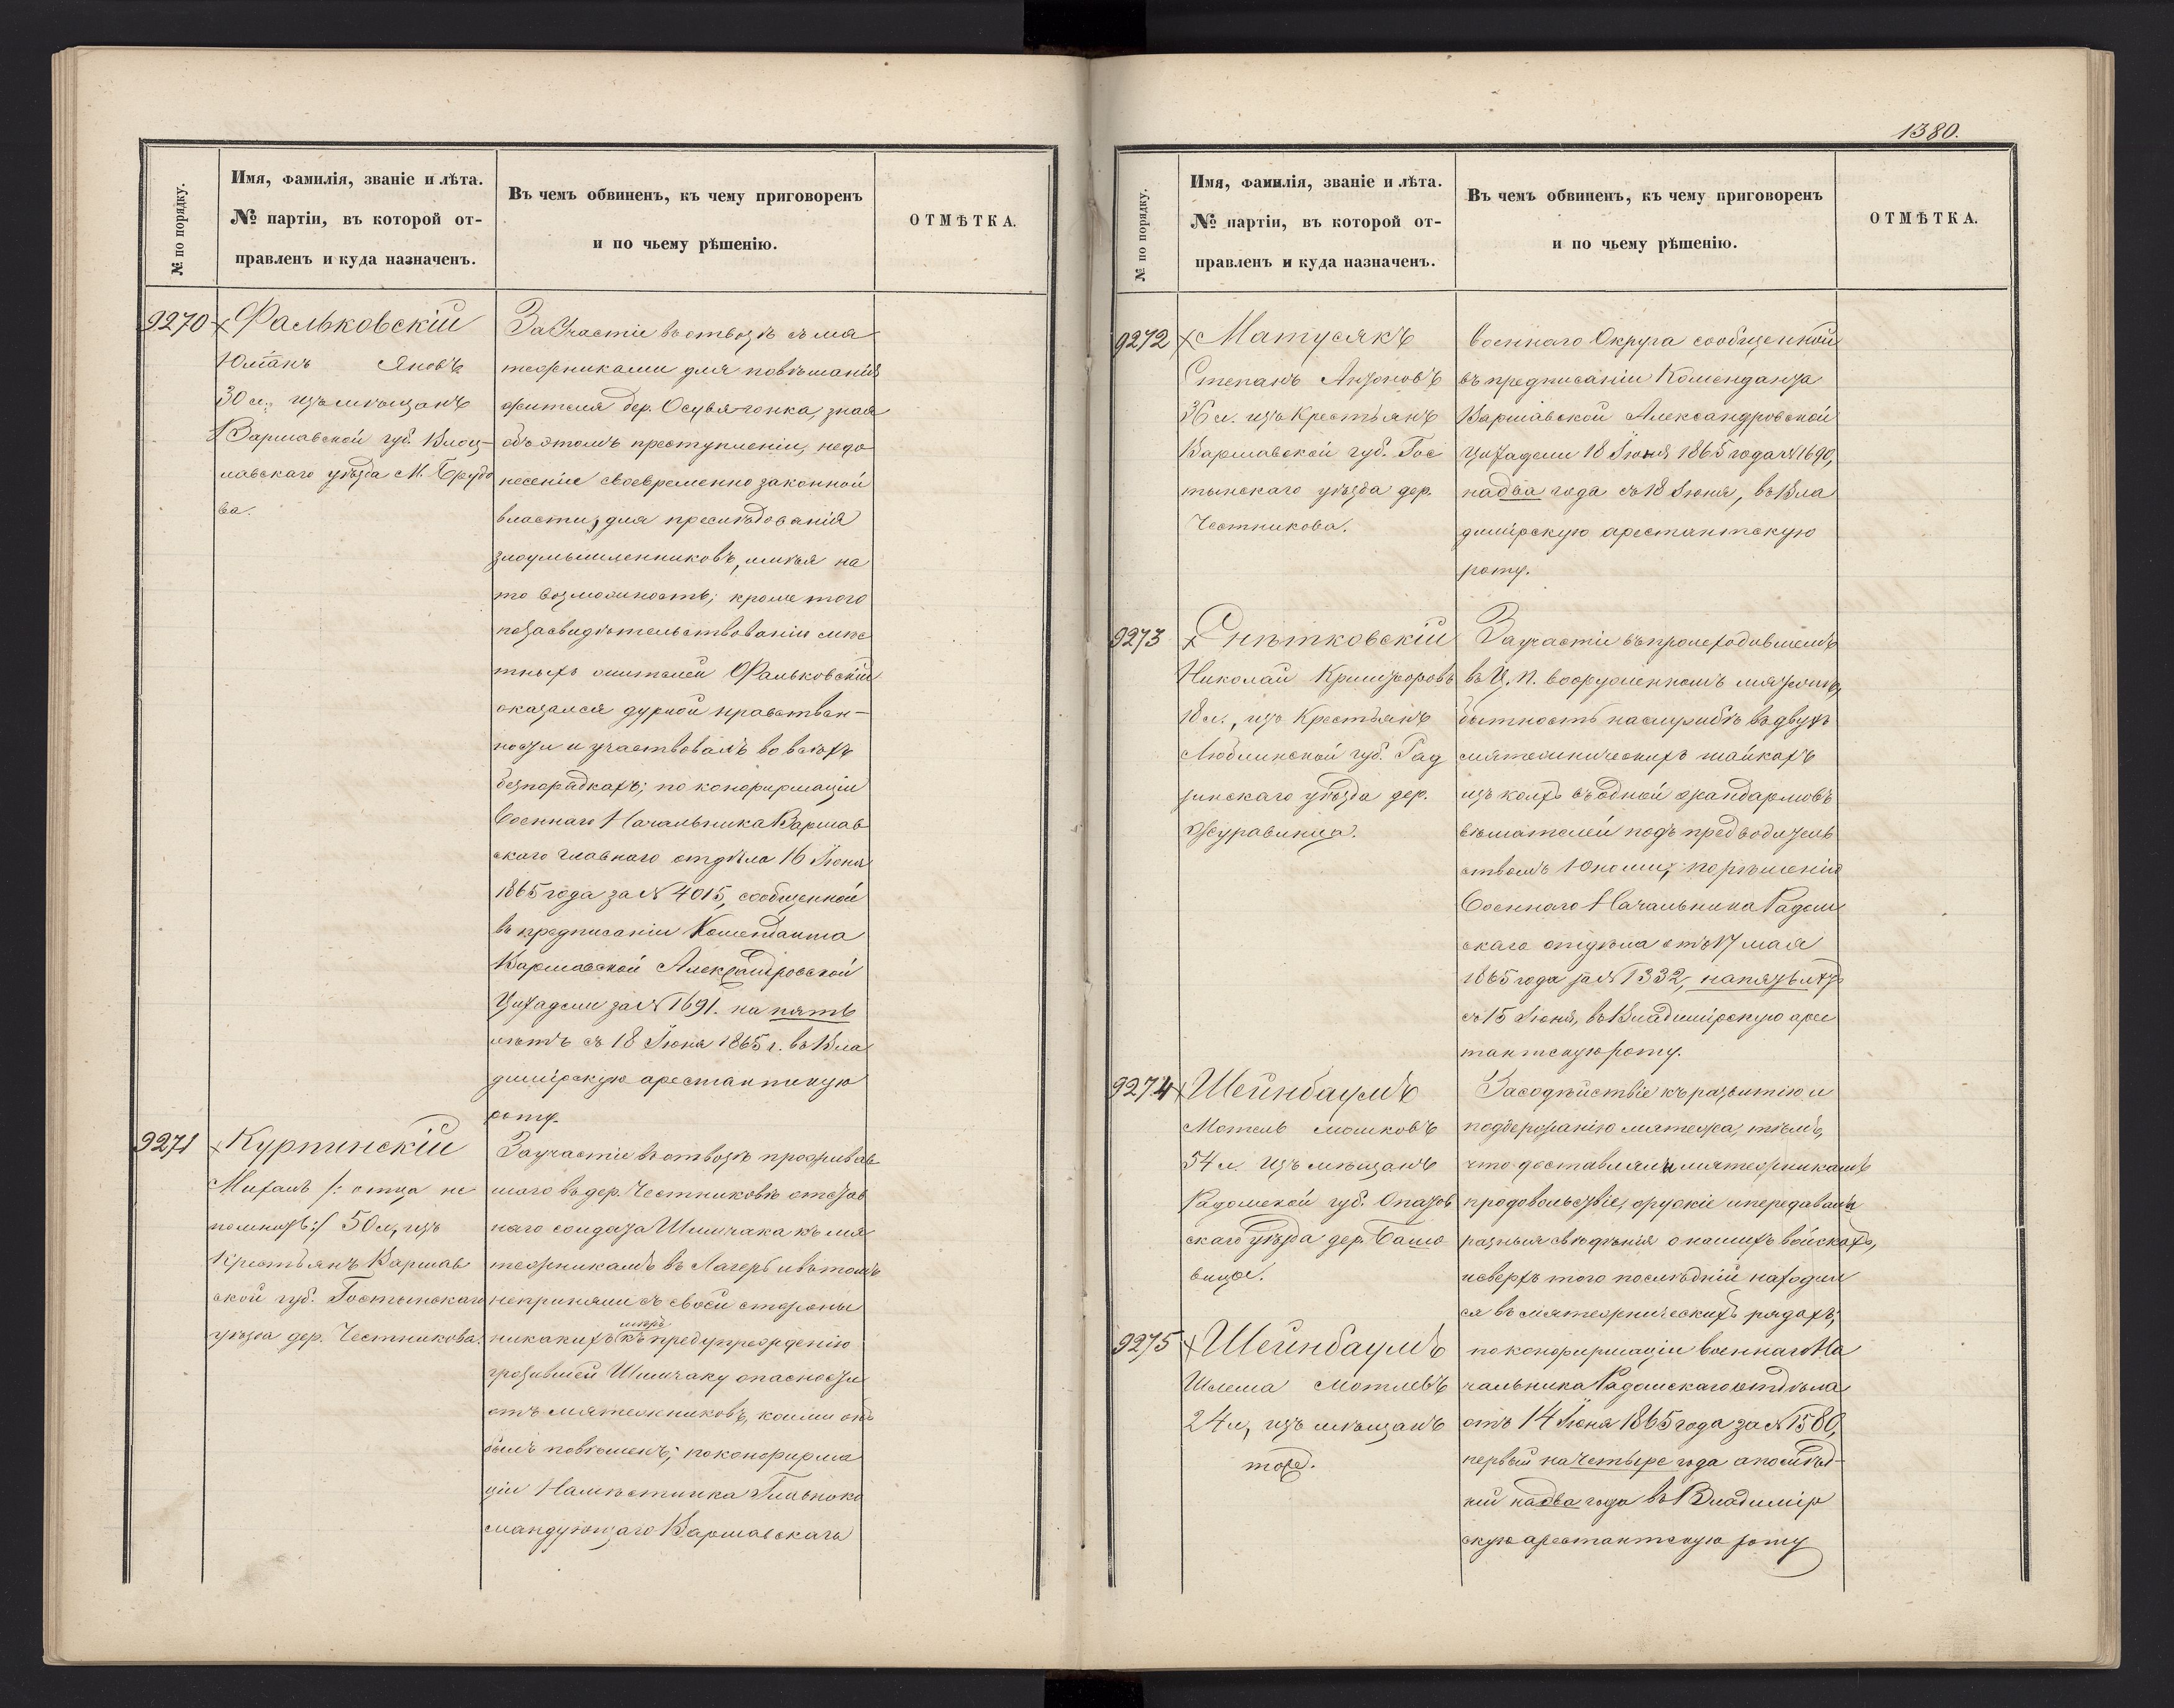 № по порядку.
Имя, фамилія, званіе и лѣта.
№ партіи, въ которой от-
правленъ и куда назначенъ.
Въ чемъ обвиненъ, къ чему приговоренъ
и по чьему рѣшенію.
ОТМѢТКА.
9270
Фальковскій
Яновъ
30 л. изъ мѣщанъ
Варшавской губ. Влоц-
лавскаго уѣзда М. Брудо
ва.
За участіе въ отвозѣ съ мя
тежниками для повѣшанія
жителя дер. зная
объ этомъ преступленіи, недо
несеніе своевременно законной
власти, для преслѣдованія
злоумышленниковъ, имѣя на
то возможность; кроме того
по засвидѣтельствованію мѣс
тныхъ жителей Фальковскій
оказался дурной нравствен-
ности и участвовалъ во всѣхъ
безпорядкахъ; по конфирмаціи
Военнаго Начальника Варшав
скаго главнаго отдѣла 16 Іюня
1865 года за № 4015, сообщенной
въ предписаніи Коменданта
Варшавской Александровской
Цитадели за № 1691. на пять
лѣтъ съ 18 Іюня 1865 г. въ Вла
димірскую арестантскую
роту.
9271
Курпинскій
Михалъ /: отца не
помнитъ :/ 50 л., изъ
Крестьянъ Варшав
ской губ. Гостынскаго
уѣзда дер. Честникова.
За участіе въ отвозѣ проживав
шаго въ дер. Честниковѣ отстав
наго солдата Шимчака къ мя
тежникамъ въ Лагерь и въ томъ
неприняли съ своей стороны
мѣръ
никакихъ къ предупрежденію
грозившей Шимчаку опасности
отъ мятежниковъ, коими онъ
былъ повѣшенъ; по конфирма
ціи Намѣстника Главноко
мандующаго Варшавскаго
1380.
№ по порядку.
Имя, фамилія, званіе и лѣта.
№ партіи, въ которой от-
правленъ и куда назначенъ.
Въ чемъ обвиненъ, къ чему приговоренъ
и по чьему рѣшенію.
ОТМѢТКА.
9272
Матусякъ
Степанъ Антоновъ
36 л. изъ Крестьянъ
Варшавской губ. Гос
тынскаго уѣзда дер.
Честникова.
Военнаго Округа сообщенной
въ предписаніи Коменданта
Варшавской Александровской
Цитадели 18 Іюня 1865 года № 1690,
на два года съ 18 Іюня, въ Вла
димірскую арестантскую
роту.
9273
Снѣтковскій
Николай Криштофовъ
18 л., изъ Крестьянъ
Люблинской губ. Рад
зинскаго уѣзда дер.
Журавлица.
За участіе въ происходившемъ
въ Ц. П. вооруженномъ мятежѣ,
бытность на службѣ въ двухъ
мятежническихъ шайкахъ
изъ коихъ въ одной жандармовъ
вѣшателей подъ предводитель
ствомъ Юноши; по рѣшенію
Военнаго Начальника Радом
скаго отдѣла отъ 17 мая
1865 года за № 1332, на пять лѣтъ
съ 15 Іюня, въ Владимірскую арес
тантскую роту.
9274
Шейнбаумъ
Мотель Мошковъ
54 л. изъ мѣщанъ
Радомской губ. Опатов
скаго уѣзда дер.
вице.
За содѣйствіе къ развитію и
поддержанію мятежа, тѣмъ,
что доставляли мятежникамъ
продовольствіе, оружіе и передавали
разныя свѣдѣнія о нашихъ войскахъ,
и сверхъ того послѣдній находил
ся въ мятежническихъ рядахъ;
9275
Шейнбаумъ
Шлема Мотлевъ
24 л., изъ мѣщанъ
тоже.
по конфирмаціи военнаго На
чальника Радомскаго отдѣла
отъ 14 Іюня 1865 года за № 1580,
первый на четыре года а послѣд-
ній на два года въ Владимір
скую арестантскую роту